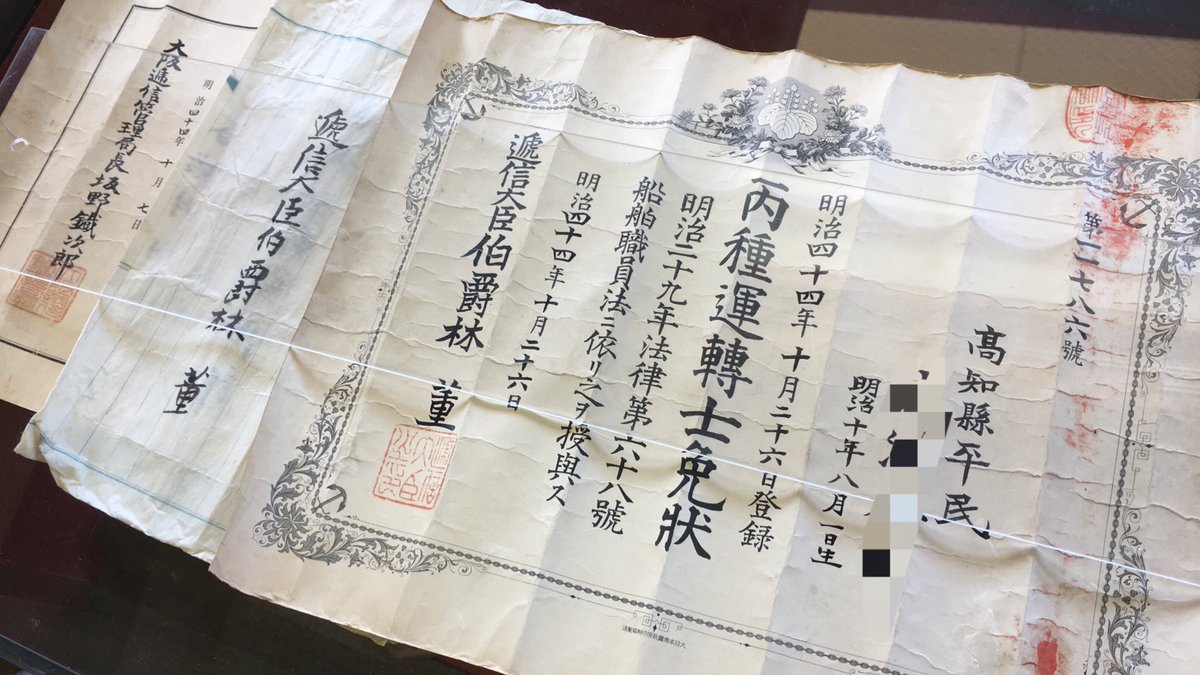 第一二七八六號
高知縣平民
明治十年八月一日生
明治四十四年十月二十六日登録
丙種運轉士免狀
明治二十九年法律第六十八號
船舶職員法ニ依リ之ヲ授與ス
明治四十四年十月二十六日
遞信大臣伯爵林 董
遞信大臣伯爵林 董
明治四十四年十月七日
大阪遞信管理局長坂野鐵次郎